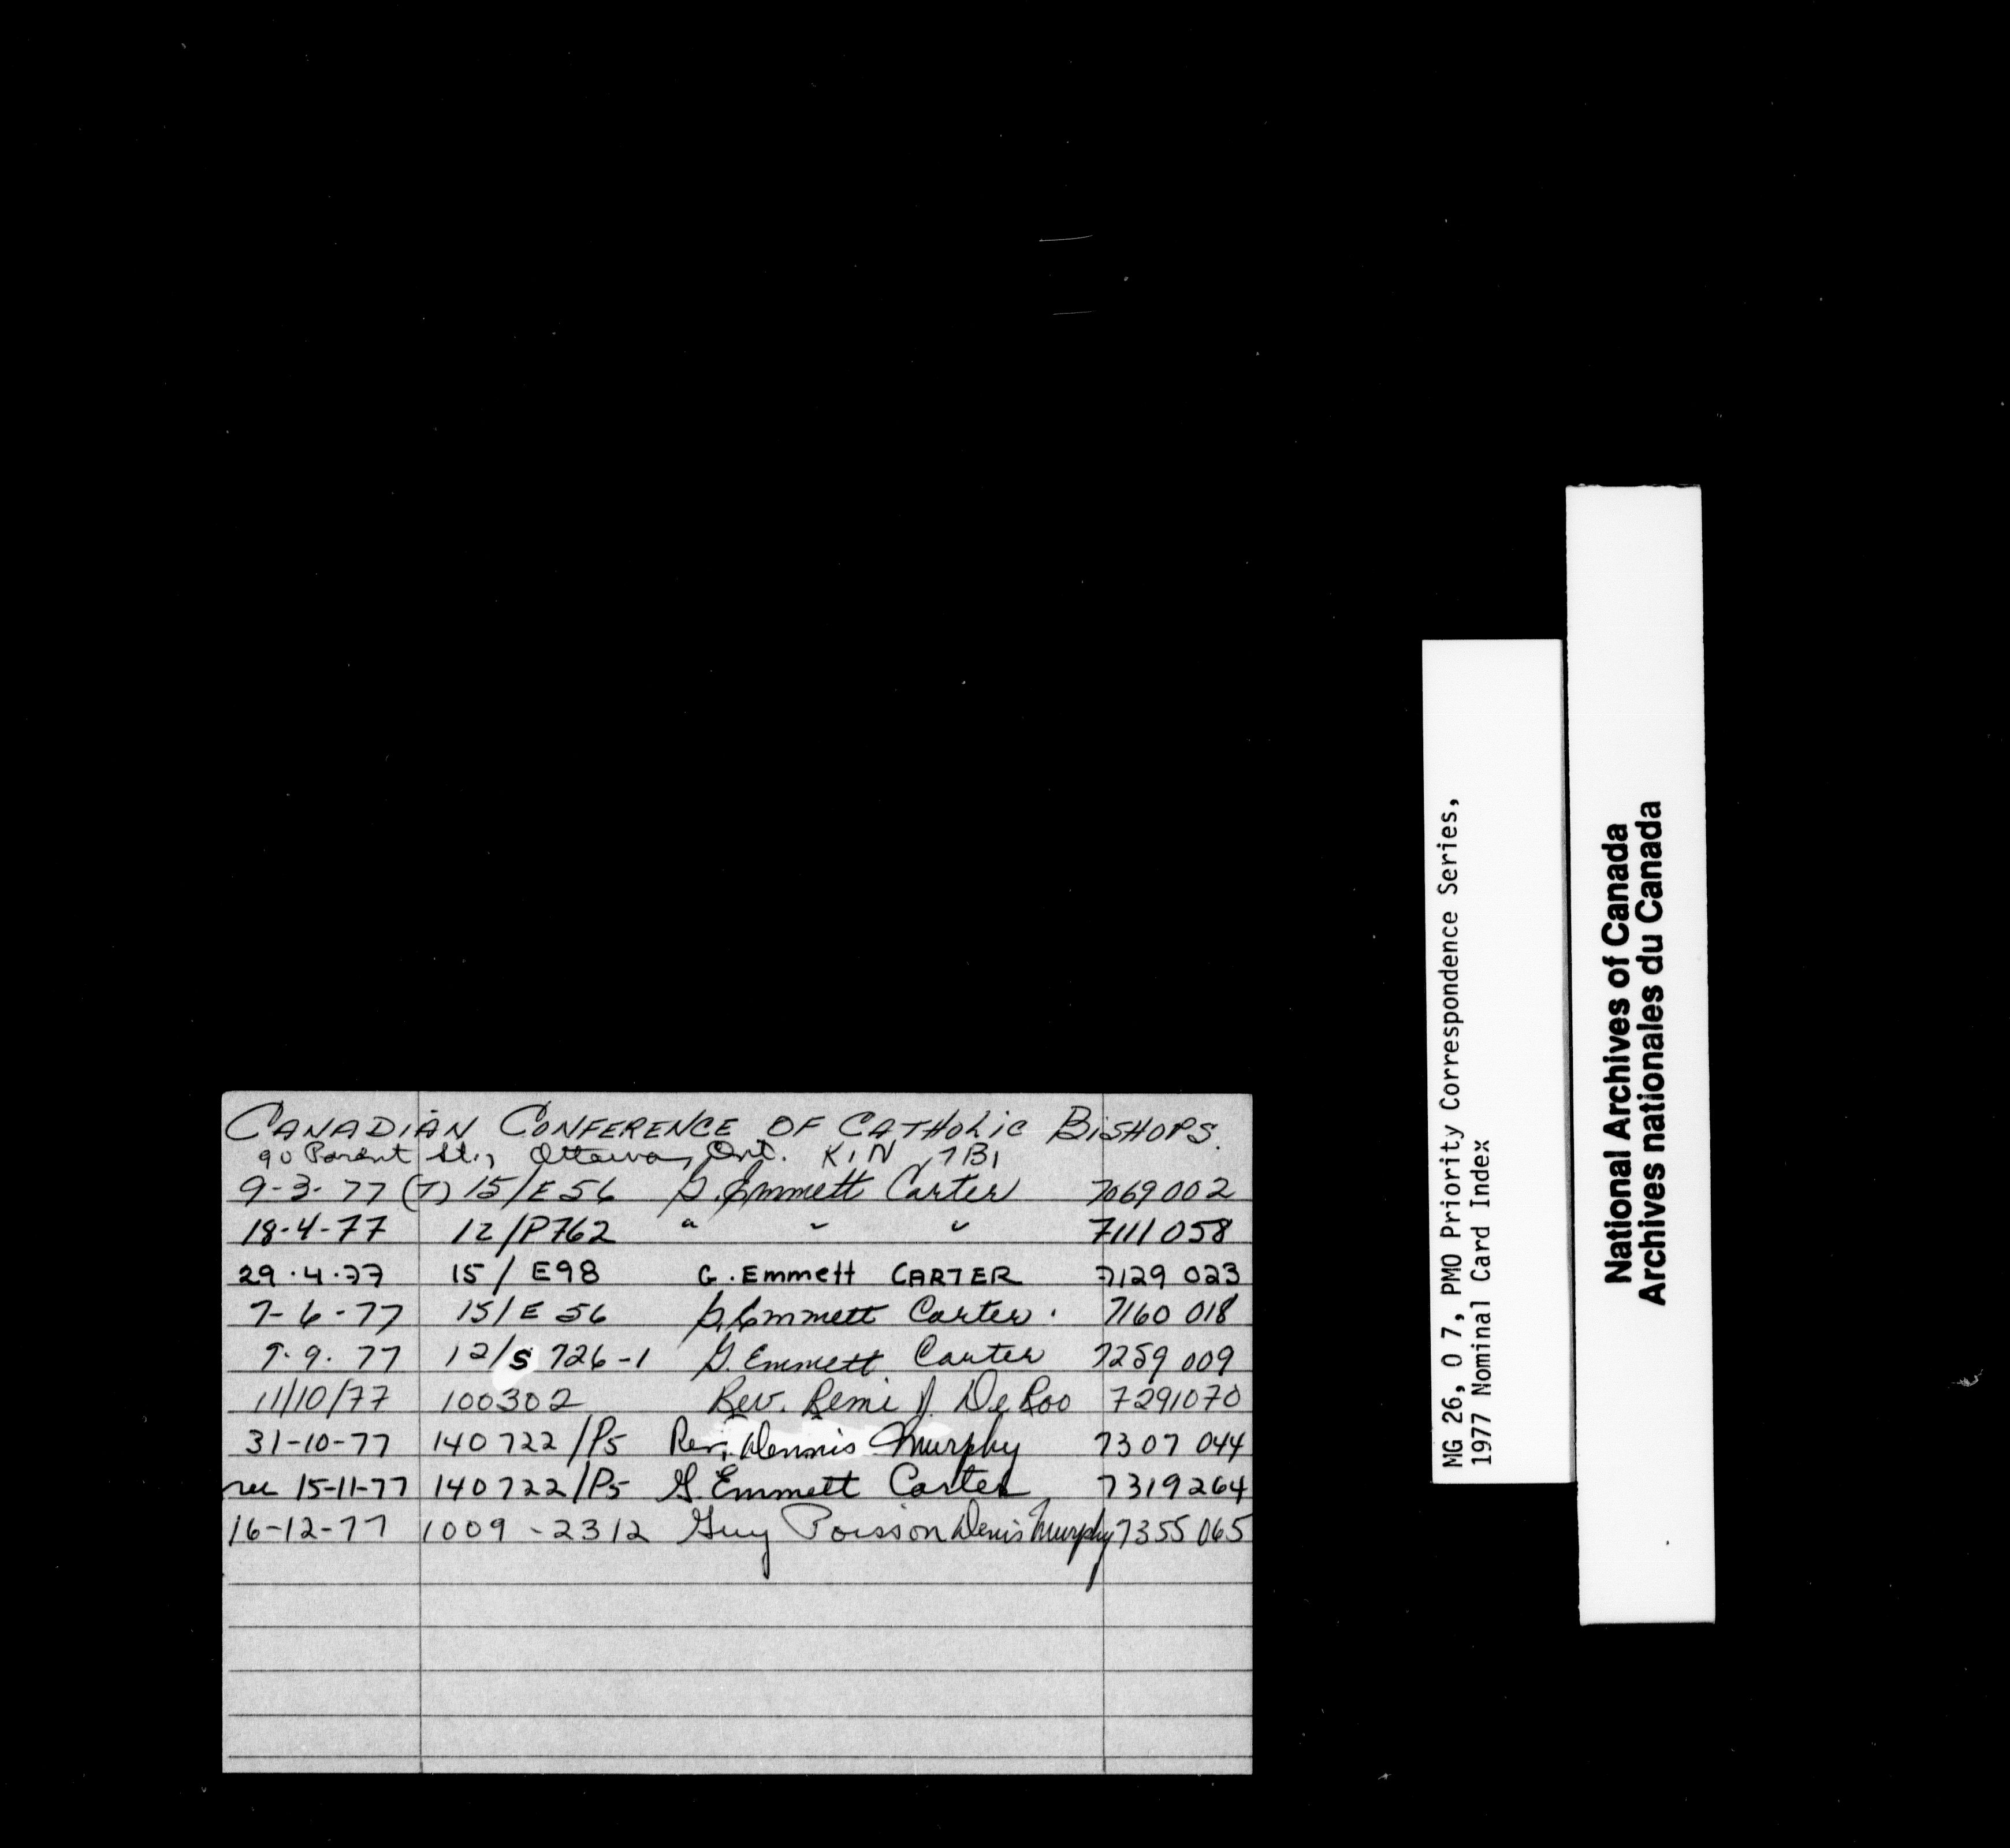 CANADIAN CONFERENCE OF CATHOLIC BISHOPS.
90 Parent St., Ottawa, Ont. K1N 7B1
9-3-77 (T) 15/E56 G. Emmett Carter 7069002
18-4-77 12/P762 " " " 7111058
29.4.77 15/E98 G. Emmett CARTER 7129 023
7-6-77 15/E 56 G. Emmett Carter. 7160 018
9.9.77 12/S 726-1 G. Emmett Carter 7259 009
11/10/77 100302 Rev. Remi J. De Roo 7291070
31-10-77 140722/P5 Rev. Dennis Murphy 7307 044
rec 15-11-77 140722/P5 G. Emmett Carter 7319264
16-12-77 1009-2312 Guy Poisson Denis Murphy 7355065
MG 26, O 7, PMO Priority Correspondence Series,
1977 Nominal Card Index
National Archives of Canada
Archives nationales du Canada